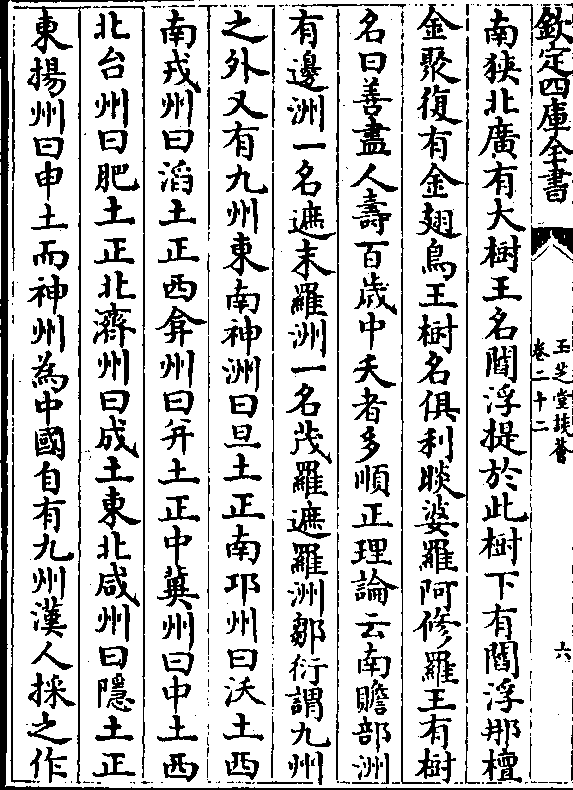 欽定四庫全書
玉芝堂談薈
卷二十二
六
南狹北廣有大樹王名閻浮提於此樹下有閻浮那檀
金聚復有金翅鳥王樹名俱利睒婆羅阿修羅王有樹
名曰善盡人壽百歲中夭者多順正理論云南贍部洲
有邊洲一名遮末羅洲一名筏羅遮羅洲鄒衍謂九州
之外又有九州東南神洲曰旦土正南邛州曰沃土西
南戎州曰滔土正西弇州曰幷土正中冀州曰中土西
北台州曰肥土正北濟州曰成土東北咸州曰隱土正
東揚州曰申土而神州為中國自有九州漢人採之作